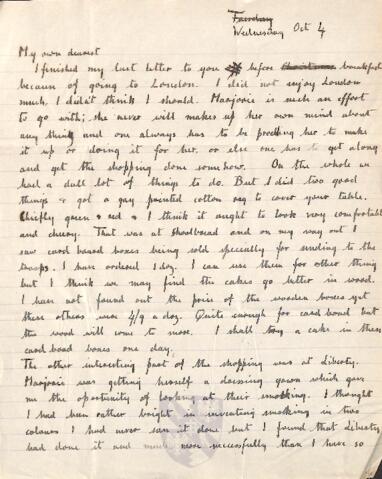 Wednesday Oct 4
My own dearest
I finished my last letter to you before breakfast
because of going to London. I did not enjoy London
much, I didn't think I should. Marjorie is such an effort
to go with; she never will makes up her own mind about
any think and one always has to be proding her to make
it up or doing it for her, or else one has to get along
and get the shopping done somehow. On the whole we
had a dull lot of things to do. But I did two good
things & got a gay painted cotton rug to cover your table.
Chiefly green & red & I think it ought to look very comfortable
and cheery. That was at Shoolbread and on my way out I
saw card board boxes being sold specially for sending to the
troops. I have ordered 1 doz. I can use them for other things
but I think we may find the cakes go better in wood.
I have not found out the price of the wooden boxes yet
these others were 4/9 a doz. Quite enough for card board but
the wood will come to more. I shall try a cake in these
card board boxes one day.
The other interesting part of the shopping was at Liberty.
Marjorie was getting herself a dressing gown which gave
me the opportunity of looking at their smocking. I thought
I had been rather bright in inventing smocking in two
colours I had never seen it done but I found that Liberty
had done it and much more successfully than I have so